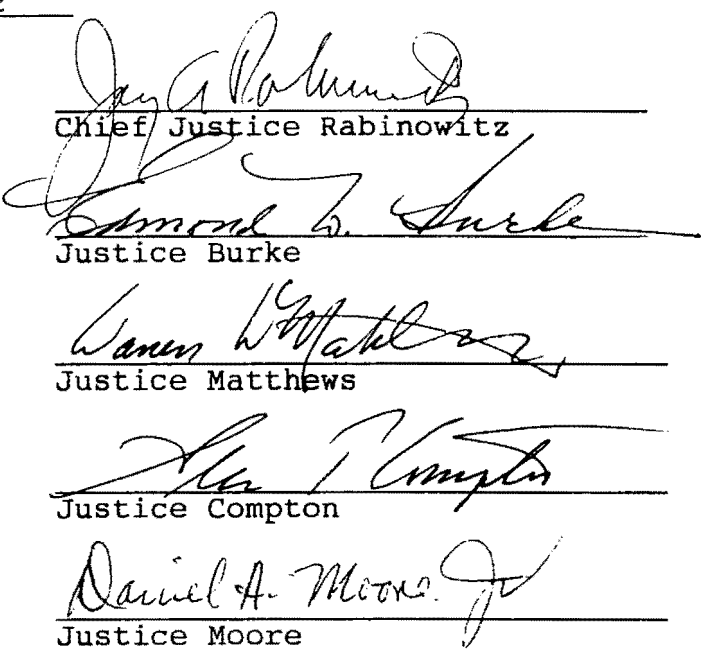 Jay A Rabinowitz
Chief Justice Rabinowitz
Edmond W. Burke
Justice Burke
Warren W Matthews
Justice Matthews
Allen T Compton
Justice Compton
Daniel A. Moore Jr
Justice Moore